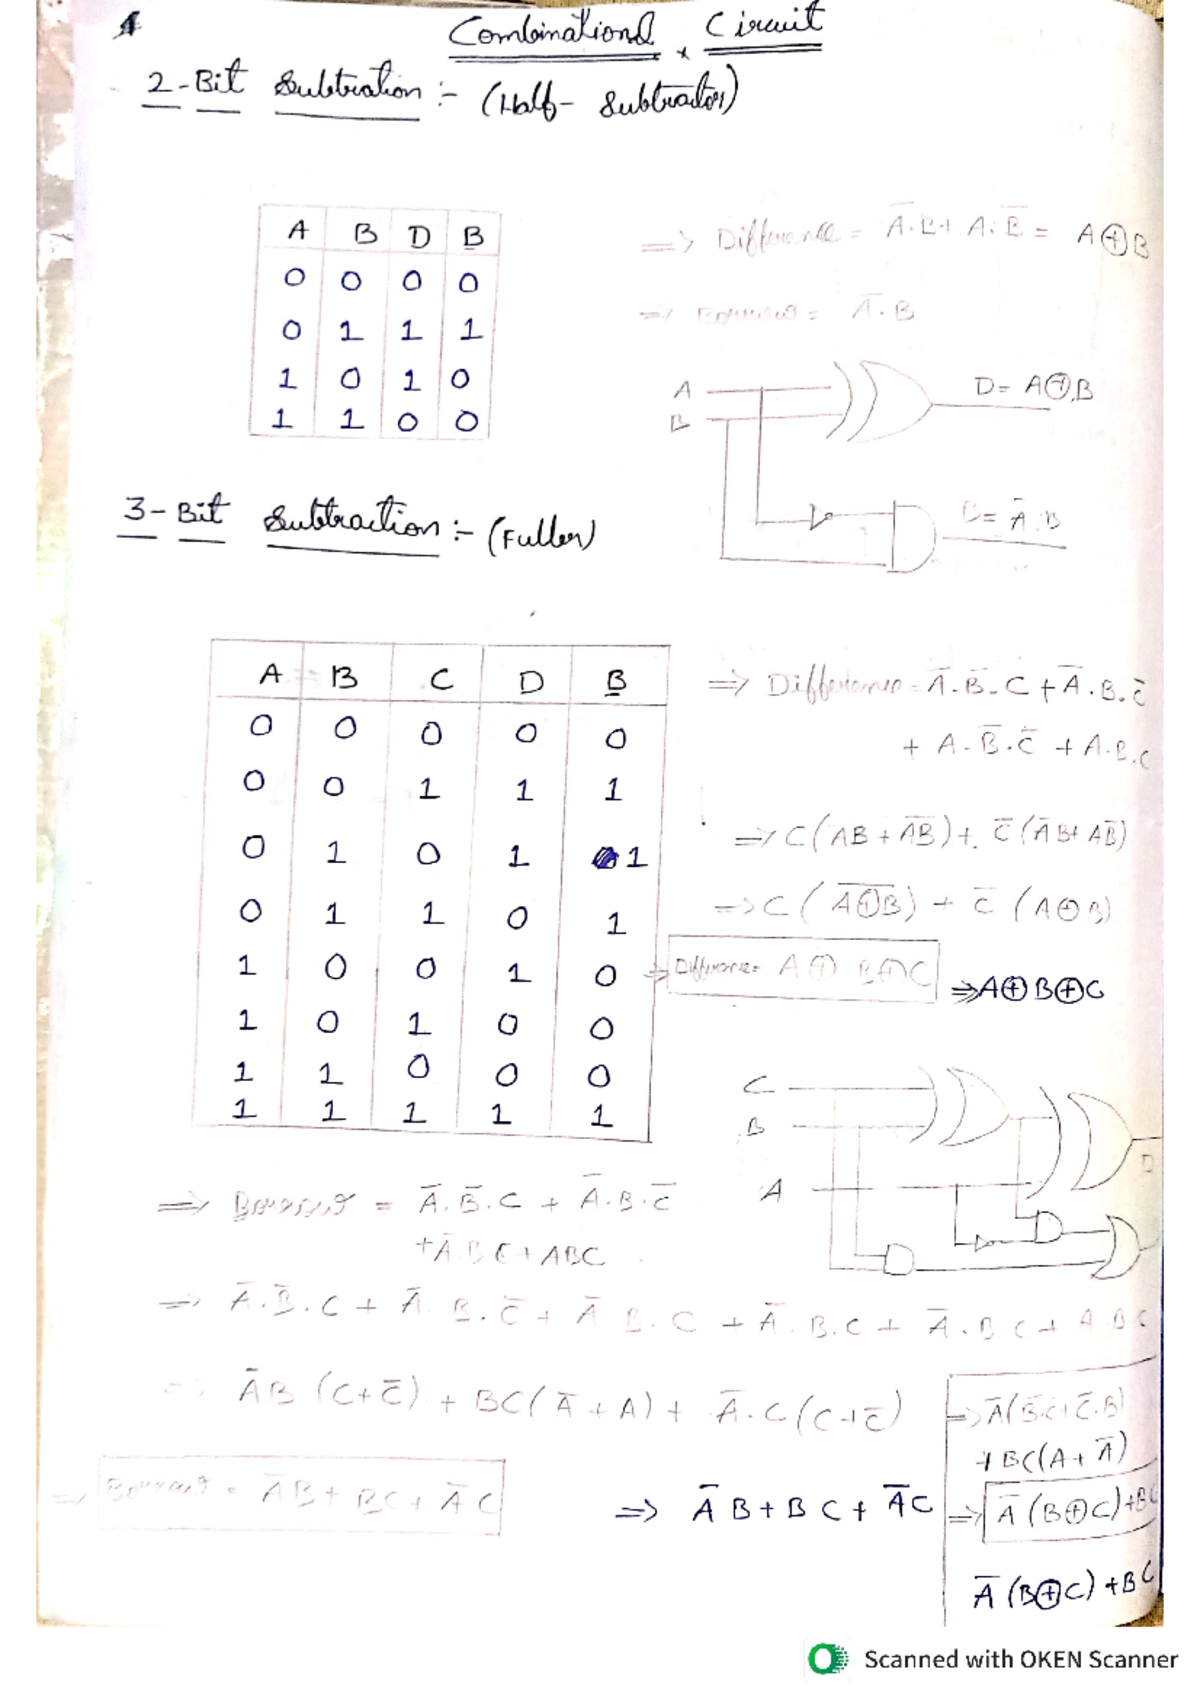 Combinational Circuit
2-Bit Subtration :- (Half- Subtractor)
A B D B
0 0 0 0
0 1 1 1
1 0 1 0
1 1 0 0
=> Difference = A̅.B + A.B̅ = A⊕B
=> Borrow = A̅.B
A
B
D= A⊕B
B= A̅.B
3-Bit Subtraction :- (Fuller)
A B C D B
0 0 0 0 0
0 0 1 1 1
0 1 0 1 1
0 1 1 0 1
1 0 0 1 0
1 0 1 0 0
1 1 0 0 0
1 1 1 1 1
=> Difference = A̅.B̅.C + A̅.B.C̅
+ A.B̅.C̅ + A.B.C
=> C(AB + A̅B̅) + C̅(A̅B + AB̅)
=> C(\overline{A⊕B}) + C̅ (A⊕B)
=> Difference= A⊕B⊕C => A⊕B⊕C
C
B
A
D
=> Borrow = A̅.B̅.C + A̅.B.C̅
+A̅BC + ABC
=> A̅.B̅.C + A̅.B.C̅ + A̅ B.C + A̅.B.C + A̅.B C + A B C
=> A̅B (C+C̅) + BC(A̅+A) + A̅.C(C+C̅)
=> Borrow = A̅B + BC + A̅C
=> A̅B + BC + A̅C
=> A̅(B̅.C + C̅.B)
+ BC(A+A̅)
=> A̅(B⊕C)+BC
A̅(B⊕C)+BC
Scanned with OKEN Scanner